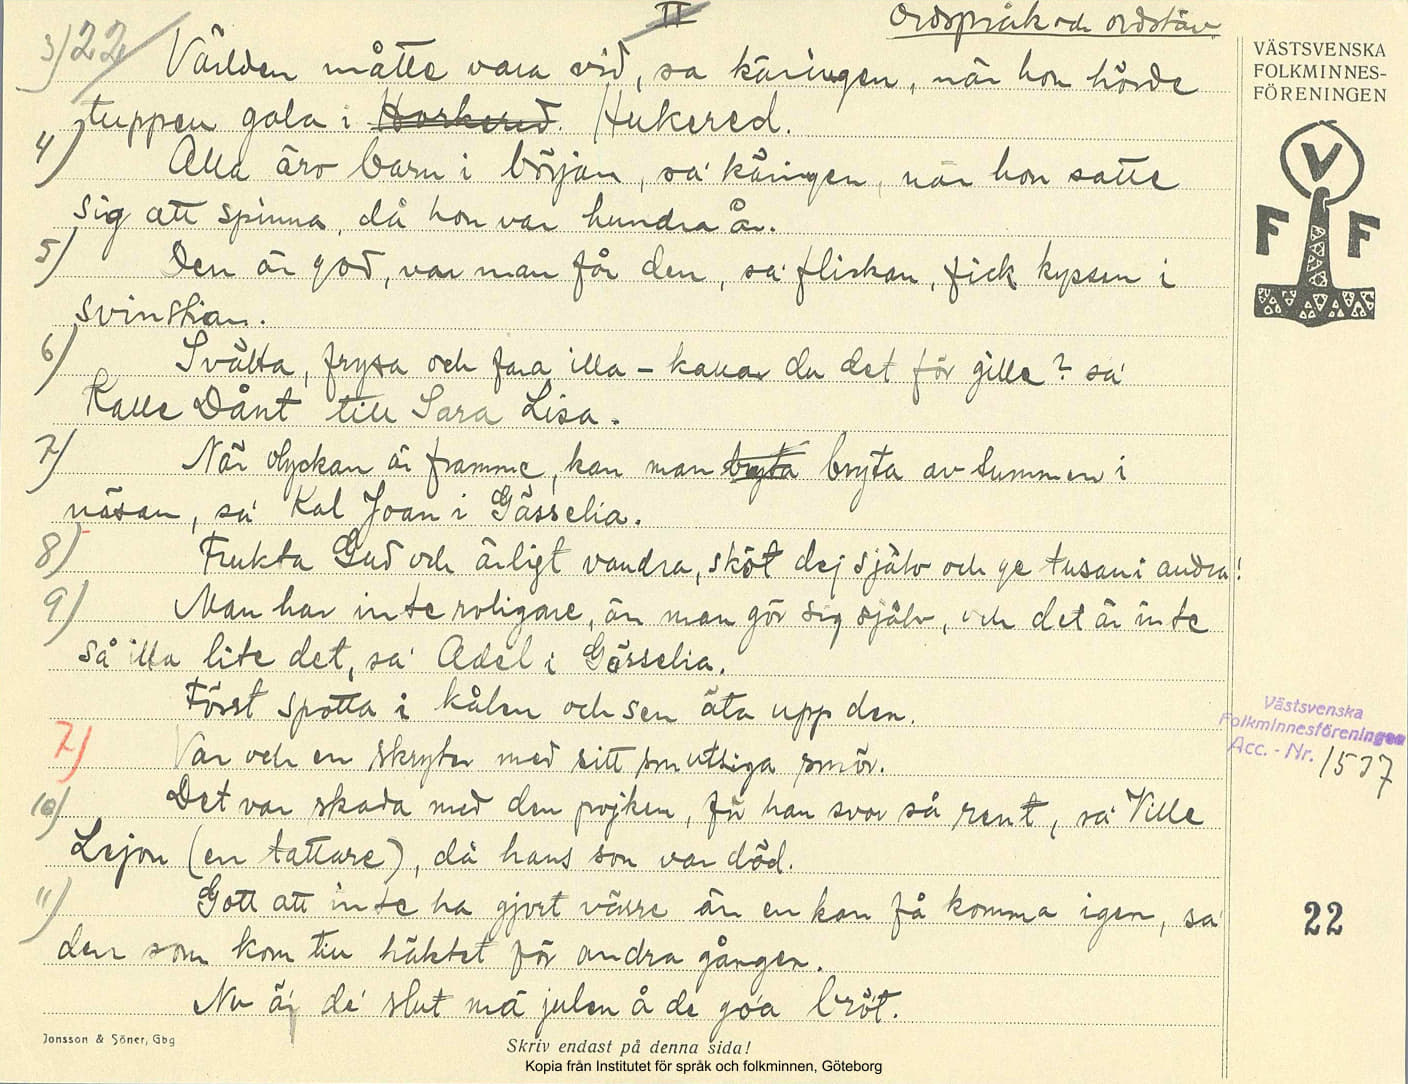 II
Ordspråk och ordstäv.
3) 22 Världen måtte vara vid, sa käringen, när hon hörde
tuppen gala i Horkered. Hukered.
4) Alla äro barn i början, sa' käringen, när hon satte
sig att spinna, då hon var hundra år.
5) Den är god, var man får den, sa' flickan, fick kyssen i
svinstian.
6) Svälta, frysa och fara illa – kallar du det för gille? sa'
Kalle Dånt till Sara Lisa.
7) När olyckan är framme, kan man bryta bryta av tummen i
näsan, sa' Kal Joan i Gässelia.
8) Frukta Gud och ärligt vandra, sköt dej själv och ge tusan i andra!
9) Man har inte roligare, än man gör sig själv, och det är inte
så illa lite det, sa' Adel i Gässelia.
Först spotta i kålen och sen äta upp den.
7) Var och en skryter med sitt smutsiga smör.
10) Det var skada med den pojken, för han svor så rent, sa' Ville
Lejon (en tattare), då hans son var död.
11) Gott att inte ha gjort värre än en kan få komma igen, sa'
den som kom till häktet för andra gången.
Nu äj de' slut mä julen å de go'a brö't.
VÄSTSVENSKA
FOLKMINNES-
FÖRENINGEN
V
F F
Västsvenska
Folkminnesföreningen
Acc. - Nr. 1537
22
Jonsson & Söner, Gbg
Skriv endast på denna sida!
Kopia från Institutet för språk och folkminnen, Göteborg